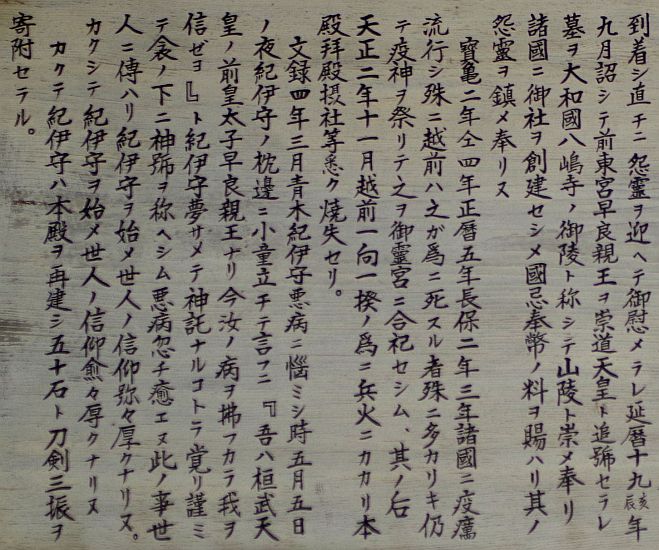 到着シ直チニ怨靈ヲ迎ヘテ御慰メラレ延暦十九亥辰年
九月詔シテ前東宮早良親王ヲ崇道天皇ト追號セラレ
墓ヲ大和國八嶋寺ノ御陵ト称シテ山陵ト崇メ奉リ
諸國ニ御社ヲ創建セシメ國忌奉幣ノ料ヲ賜ハリ其ノ
怨靈ヲ鎮メ奉リヌ
寳亀二年仝四年正暦五年長保二年三年諸國ニ疫癘
流行シ殊ニ越前ハ之が爲ニ死スル者殊ニ多カリキ仍
テ疫神ヲ祭リテ之ヲ御靈宮ニ合祀セシム、其ノ后
天正二年十一月越前一向一揆ノ爲ニ兵火ニカカリ本
殿拜殿摂社等悉ク焼失セリ。
文録四年三月青木紀伊守悪病ニ惱ミシ時五月五日
ノ夜紀伊守ノ枕邊ニ小童立チテ言フニ『吾ハ桓武天
皇ノ前皇太子早良親王ナリ今汝ノ病ヲ拂フカラ我ヲ
信ゼヨ』ト紀伊守夢サメテ神託ナルコトヲ覚リ謹ミ
テ衾ノ下ニ神號ヲ称ヘシム悪病忽チ癒エヌ此ノ事世
人ニ傳ハリ紀伊守ヲ始メ世人ノ信仰弥々厚クナリヌ。
カクシテ紀伊守ヲ始メ世人ノ信仰愈々厚クナリヌ
カクテ紀伊守ハ本殿ヲ再建シ五十石ト刀剣三振ヲ
寄附セラル。